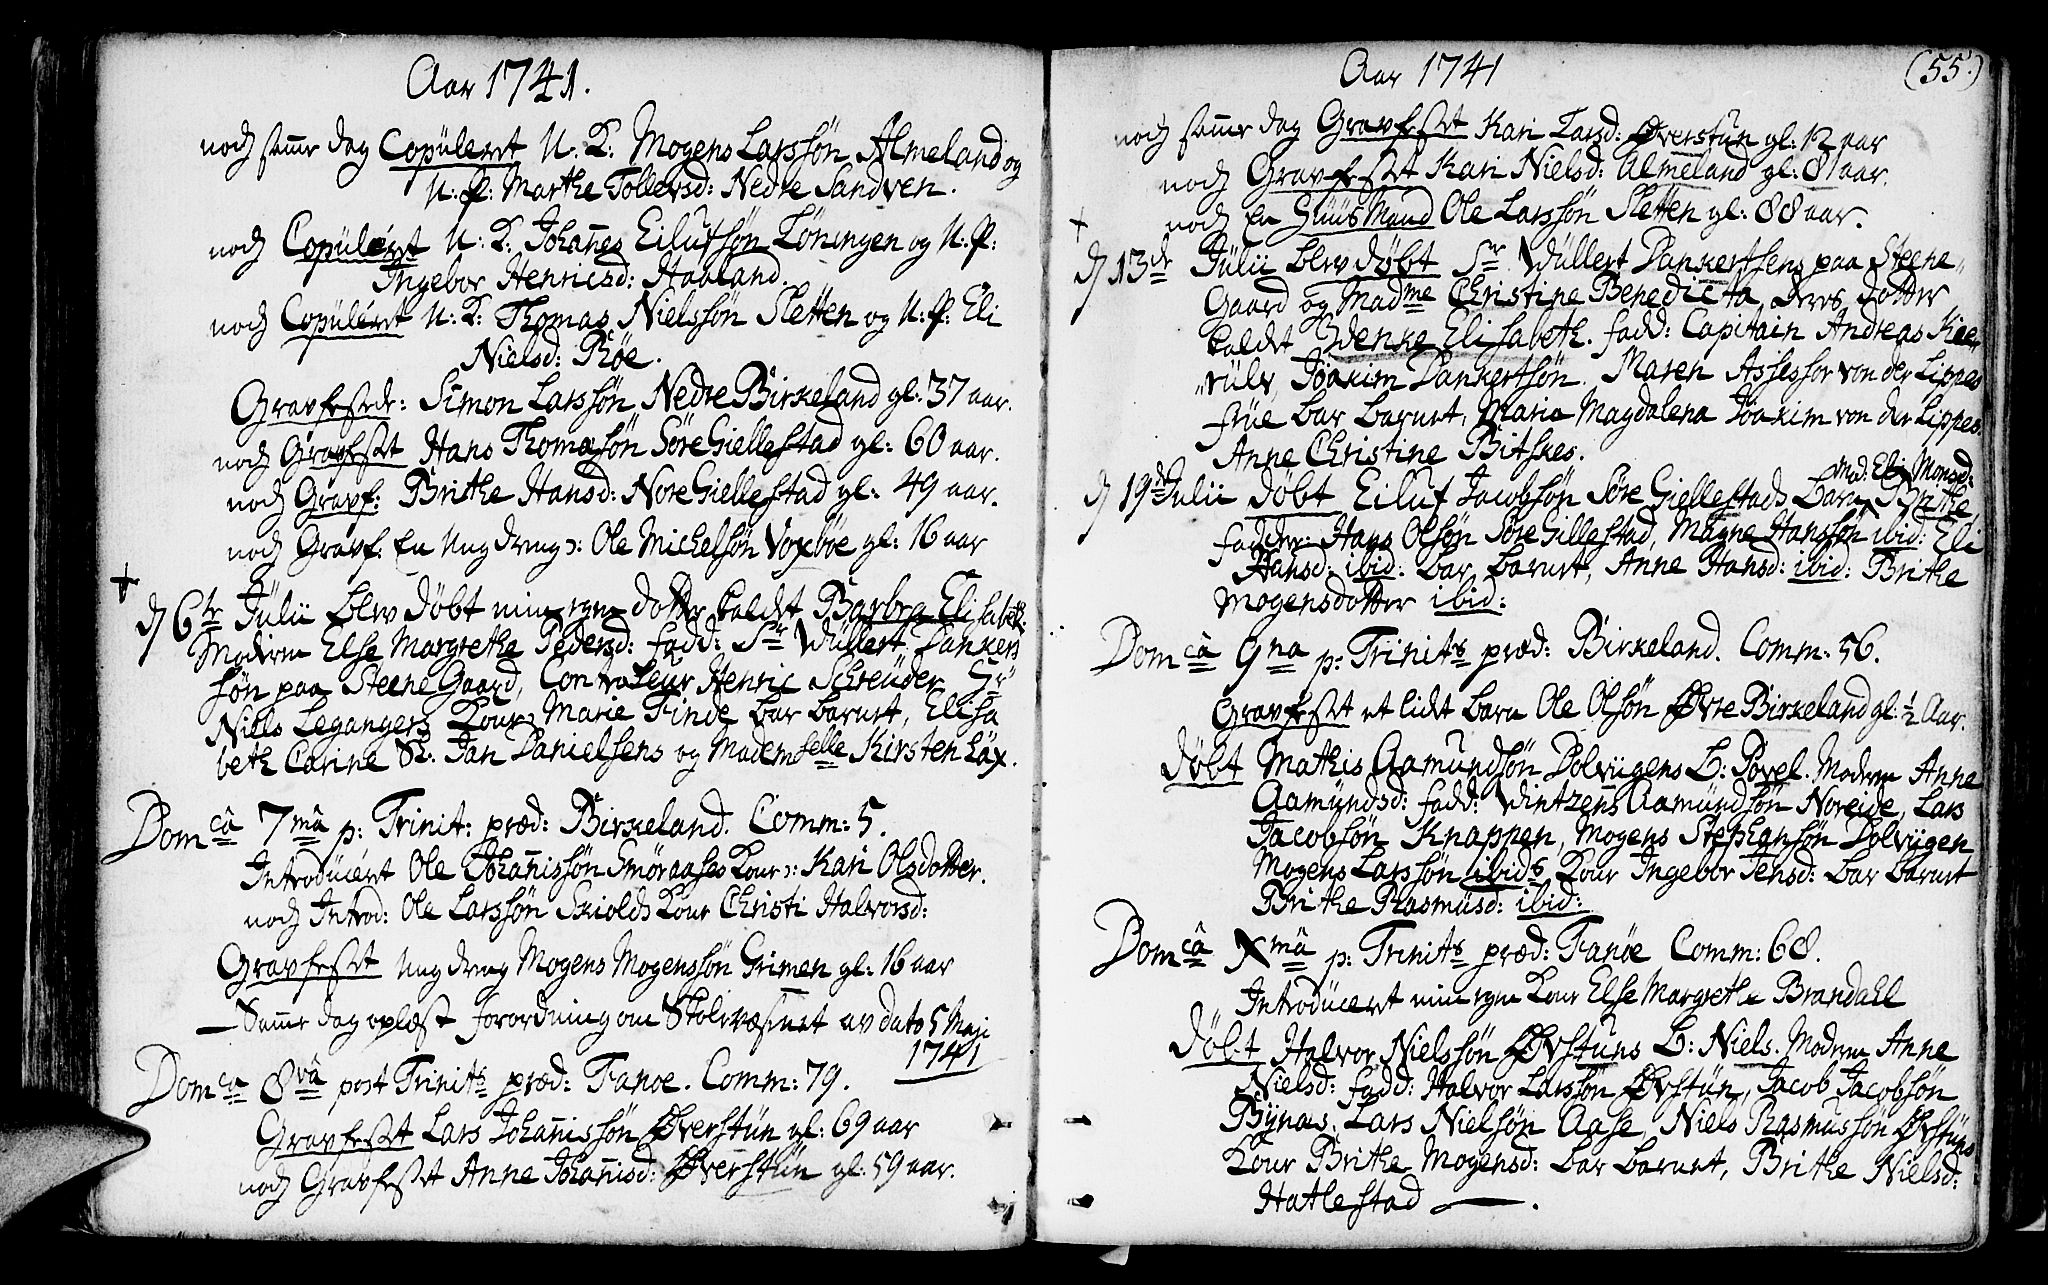 Aar 1741.
noch samme dag Copuleret U. K: Mogens Larssøn Almeland og
U. P: Marthe Tollersd: Nedre Sandven.
noch Copuleret U. K: Johannes Eilufsøn Løningen og U. P:
Ingebor Henricsd: Haaland.
noch Copuleret U. K: Thomas Nielssøn Sletten og U. P: Eli
Nielsd: Røe.
Gravfestede: Simon Larssøn Nedre Birkeland gl: 37 aar.
noch Gravfestet Hans Thomæsøn Søre Giellestad gl: 60 aar.
noch Gravf: Brithe Hansd: Nore Giellestad gl: 49 aar.
noch Gravf: En Ung dreng: Ole Michelsøn Voxbøe gl: 16 aar
d 6te Julii blev døbt min egen dotter kaldt Barbra Elisabeth.
Moderen Else Margrethe Pedersd: fadd: Sr Wullert Dankert
søn paa Steene Gaard, Controleur Henric Schreuder, Hr
Niels Legangers Kone, Marie Finde bar barnet, Elisa
beth Carine Jan Danielsens og Mademselle Kirsten Lax.
Dom câ 7mâ p: Trinit: præd: Birkeland. Comm: 5.
Introduceret Ole Johannissøn Smøraases Kone: Kari Olsdotter.
noch Introd: Ole Larssøn Skiolds Kone Christi Halvorsd:
Gravfestet Ung dreng Mogens Mogenssøn Grimen gl: 16 aar
— Samme dag oplæst forordning om Skolevæsenet av dato 5 Maji
1741
Dom ca 8vâ post Trinits præd: Fanøe. Comm: 79.
Gravfestet Lars Johannissøn Øverstun gl: 69 aar
noch Gravfestet Anne Johannisd: Øverstun gl: 59 aar.
Aar 1741
(55.)
noch samme dag Gravfestet Kari Larsd: Øverstun gl: 12 aar
noch Gravfestet Kari Nielsd: Almeland gl: 81 aar.
noch En Huus Mand Ole Larssøn Sletten gl: 88 aar.
d 13de Julii blev døbt Sr Wullert Dankertsens paa Steene
Gaard og Madme Christine Benedicta, deres dotter
kaldt Zdenke Elisabeth. fadd: Capitain Andreas Kie
rulv, Joakim Dankertsøn. Maren Assessor von der Lippes
frue bar barnet, Maria Magdalena Joakim von der Lippes.
Anne Christine Bitskes.
d 19de Julii døbt Eiluf Jacobsøn Søre Giellestads barn Brithe
Md: Eli Monsd:
fadder: Hans Olsøn Søre Gillestad, Magne Hanssøn ibid: Eli
Hansd: ibid: bar barnet, Anne Hansd: ibid: Brithe
Mogensdotter ibid:
Dom câ 9na p: Trinits præd: Birkeland. Comm: 56.
Gravfestet et lidet barn Ole Olsøn Øvre Birkeland gl: ½ Aar.
Døbt Mathis Aamundsøn Dolviigens B: Povel. Moderen Anne
Aamundsd: fadd: Wintzens Aamundsøn Noreide, Lars
Jacobsøn Knappen, Mogens Stephansøn Dolviigen
Mogens Larssøn ibids Kone Ingebor Jensd: bar barnet
Brithe Rasmusd: ibid:
Dom câ Xmâ p: Trinits præd: Fanøe Comm: 68.
Introduceret min egen Kone Else Margrethe Brandahl
Døbt Halvor Nielssøn Øvstuns B: Niels. Moderen Anne
Nielsd: fadd: Halvor Larssøn Øvstun, Jacob Jacobsøn
Bynas, Lars Nielsøn Aase, Niels Rasmussøn Øvstuns
Kone Brithe Mogensd: bar barnet, Brithe Nielsd:
Hatlestad.